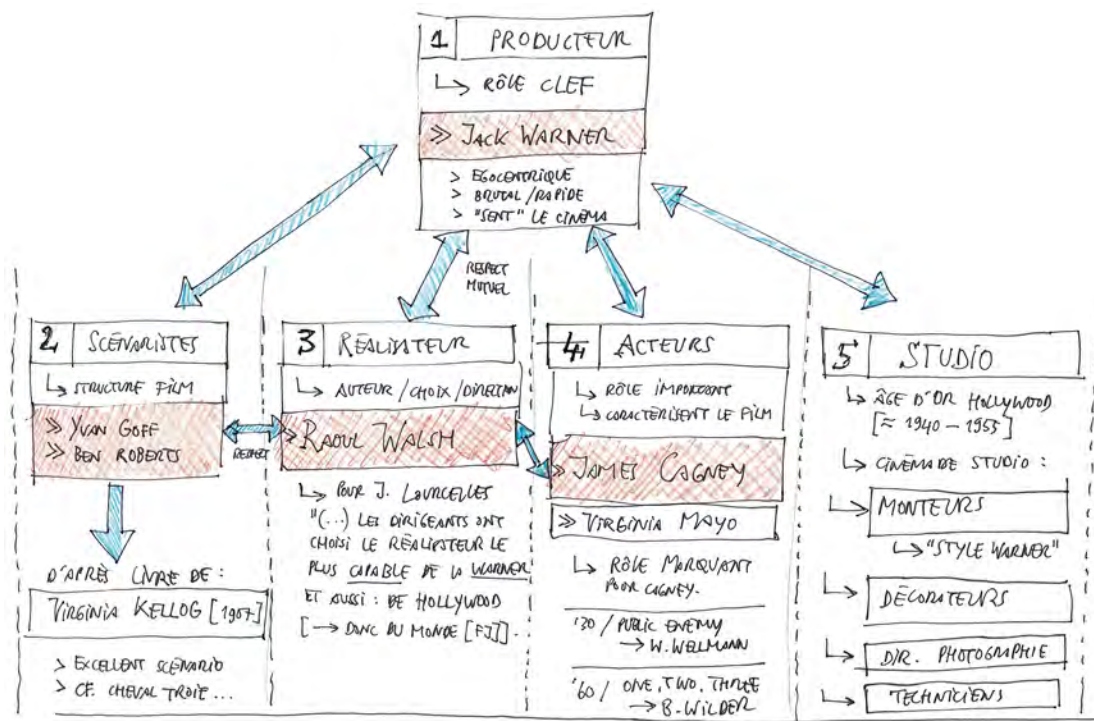 1 PRODUCTEUR
RÔLE CLEF
>> JACK WARNER
> EGOCENTRIQUE
> BRUTAL/RAPIDE
> "SENT" LE CINÉMA
RESPECT
MUTUEL
2 SCÉNARISTES
STRUCTURE FILM
>> YVAN GOFF
>> BEN ROBERTS
RESPECT
D'APRÈS LIVRE DE :
VIRGINIA KELLOG [1907]
> EXCELLENT SCÉNARIO
> CF. CHEVAL TROIE ...
3 RÉALISATEUR
AUTEUR/CHOIX/DIRECTION
>> RAOUL WALSH
POUR J. LOURCELLES
"(...) LES DIRIGEANTS ONT
CHOISI LE RÉALISATEUR LE
PLUS CAPABLE DE LA WARNER
ET AUSSI : DE HOLLYWOOD
[→ DONC DU MONDE [FJJ].
4 ACTEURS
RÔLE IMPORTANT
CARACTÉRISENT LE FILM
>> JAMES CAGNEY
>> VIRGINIA MAYO
RÔLE MARQUANT
POUR CAGNEY.
'30 / PUBLIC ENEMY
→ W. WELLMANN
'60 / ONE, TWO, THREE
→ B. WILDER
5 STUDIO
ÂGE D'OR HOLLYWOOD
[≈ 1940 – 1955]
CINÉMA DE STUDIO :
MONTEURS
"STYLE WARNER"
DÉCORATEURS
DIR. PHOTOGRAPHIE
TECHNICIENS